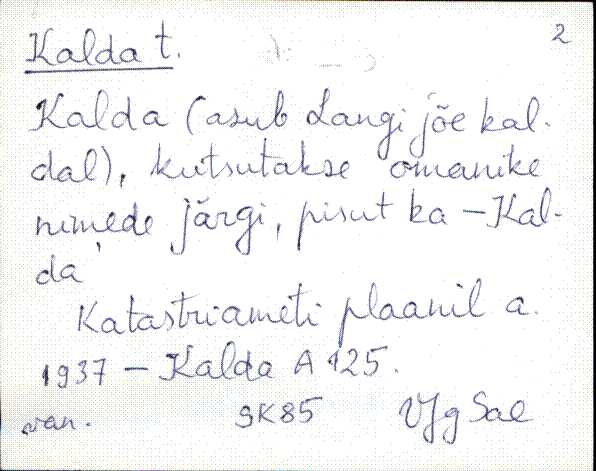 2
Kalda t.
Kalda (asub Langi jõe kal-
dal), kutsutakse omanike
nimede järgi, pisut ka – Kal-
da
Katastriameti plaanil a.
1937 – Kalda A 125.
van. SK85 VJg Sae